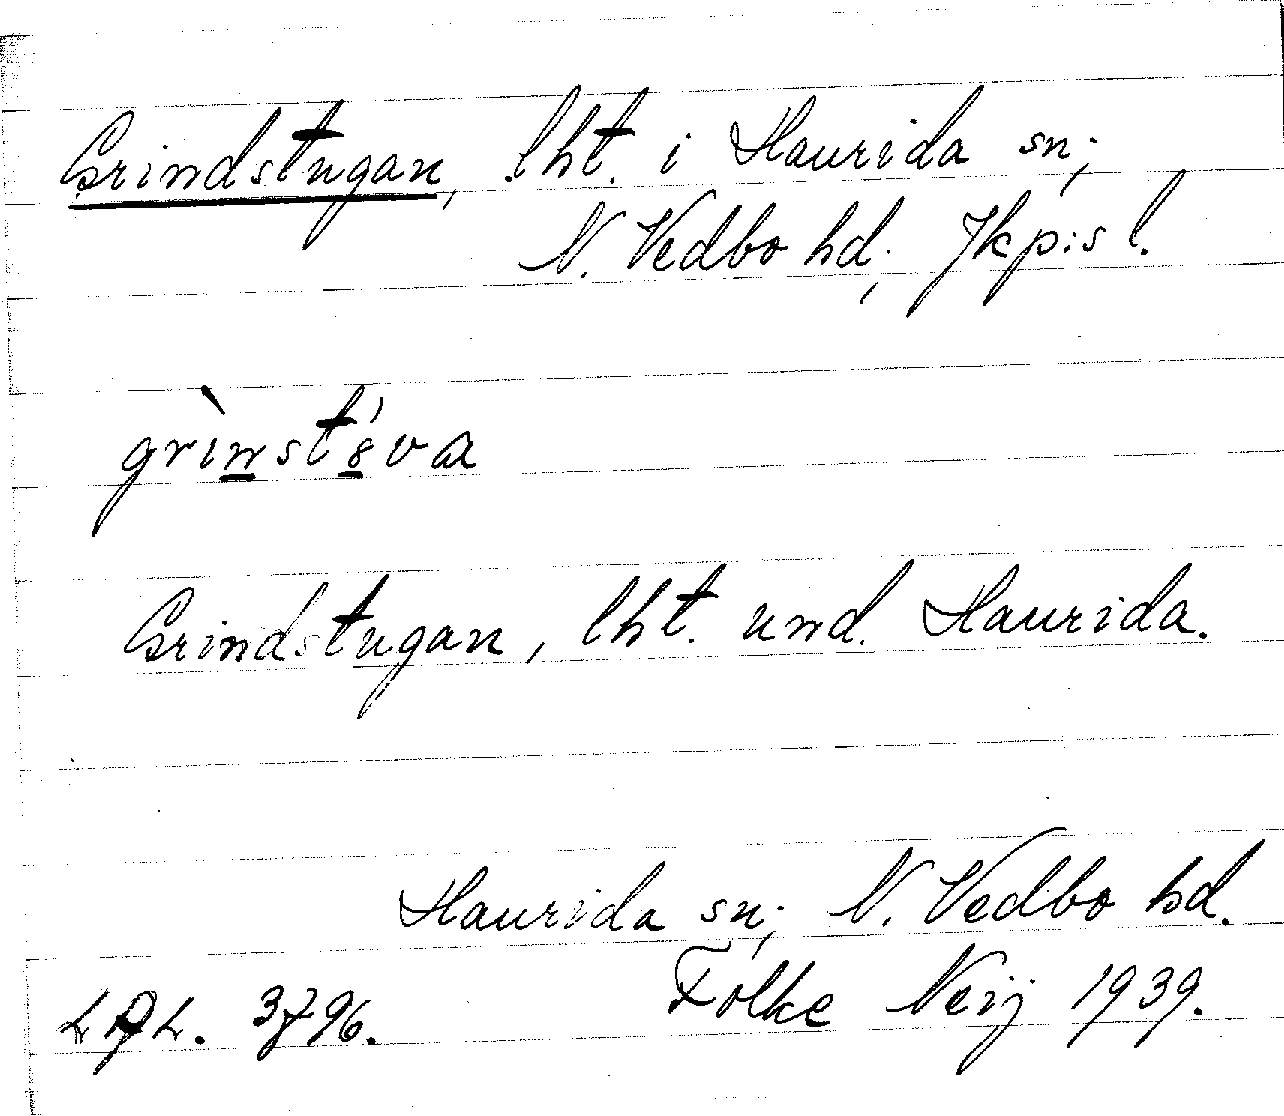 Grindstugan, lht. i Haurida sn;
N. Vedbo hd; Jkp:s l.
grìnst8́va
Grindstugan, lht. und. Haurida.
Haurida sn; N. Vedbo hd.
Folke Neij 1939.
3796.